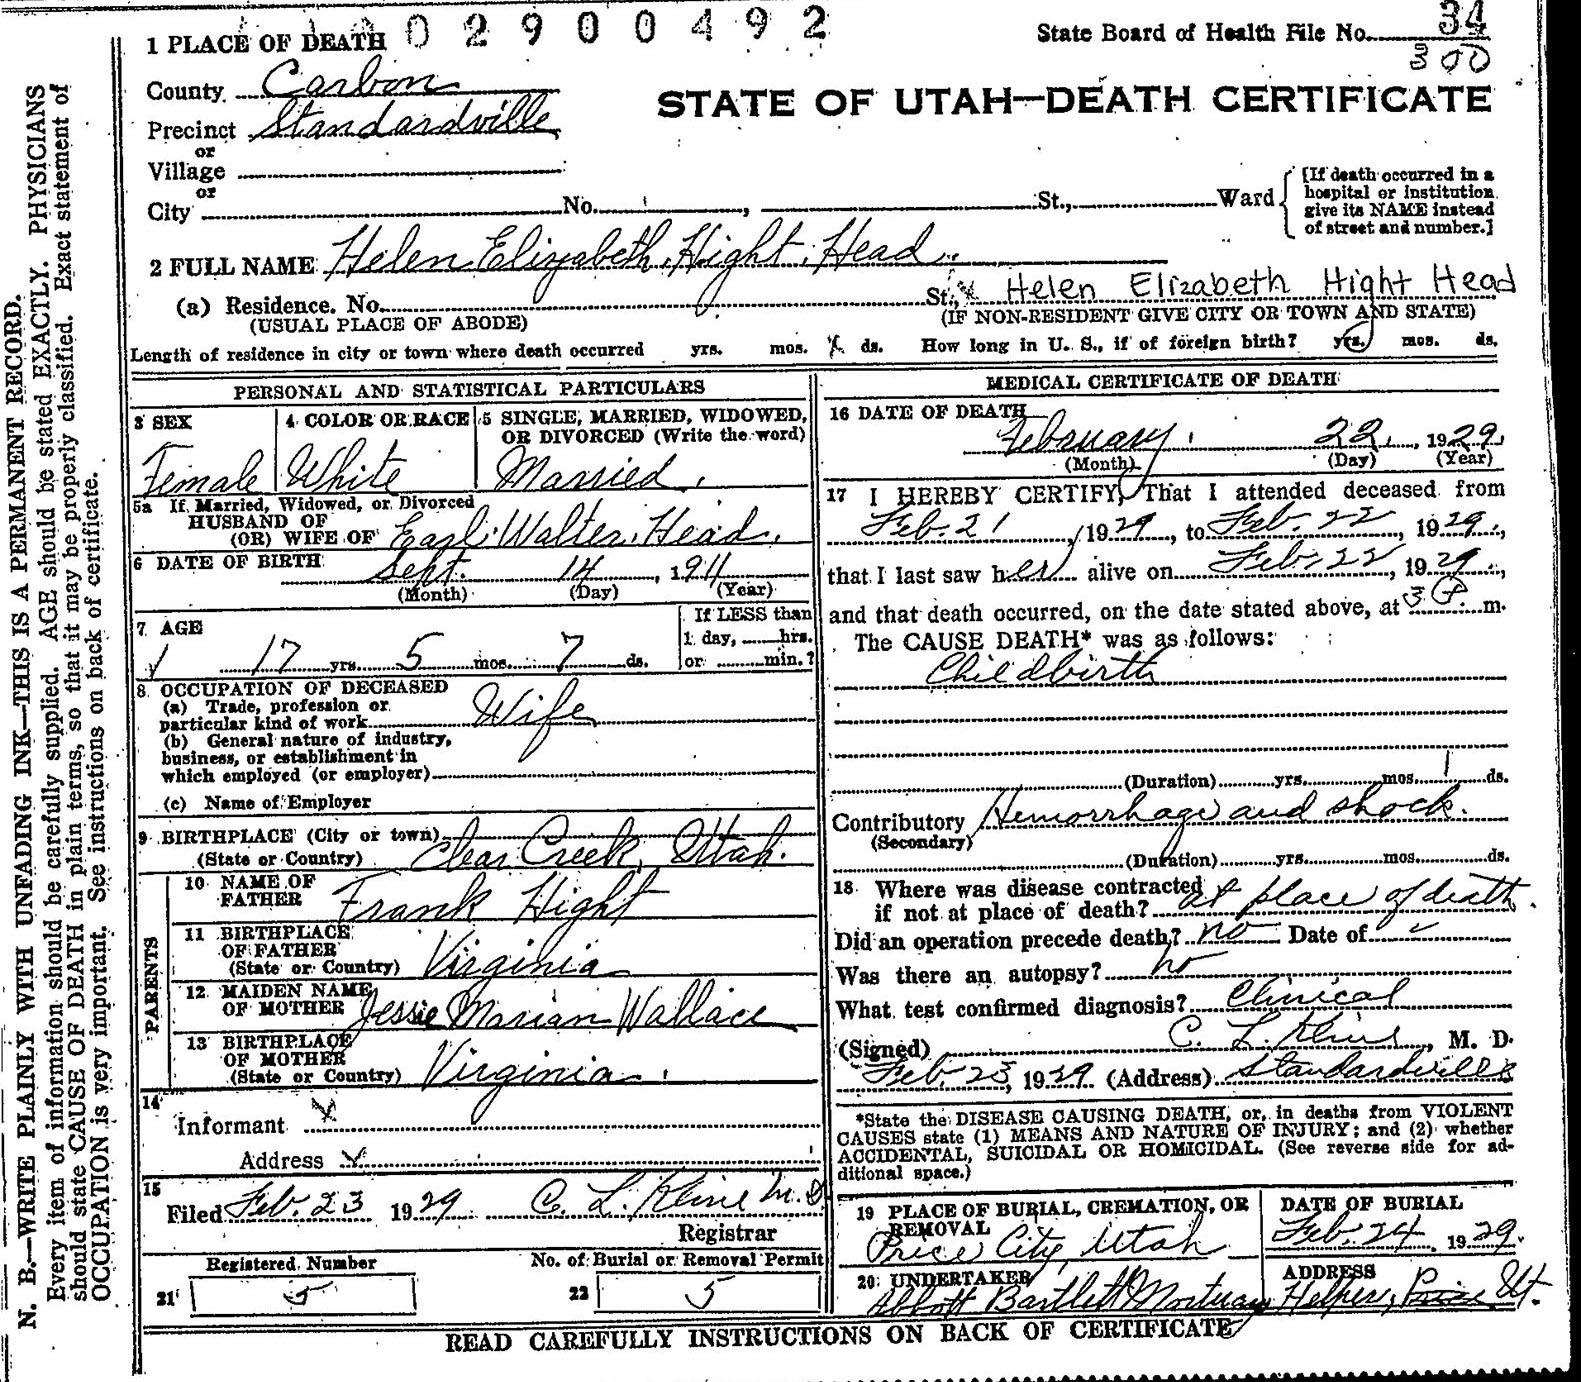 0 2 9 0 0 4 9 2
State Board of Health File No. 34
300
1 PLACE OF DEATH
County Carbon
STATE OF UTAH—DEATH CERTIFICATE
Precinct Standardville
or
Village
or
City No. , St., Ward
[If death occurred in a
hospital or institution
give its NAME instead
of street and number.]
2 FULL NAME Helen Elizabeth Hight Head
(a) Residence. No. St., Helen Elizabeth Hight Head
(USUAL PLACE OF ABODE) (IF NON-RESIDENT GIVE CITY OR TOWN AND STATE)
Length of residence in city or town where death occurred yrs. mos. ds. How long in U. S., if of foreign birth? yrs. mos. ds.
PERSONAL AND STATISTICAL PARTICULARS
3 SEX
Female
4 COLOR OR RACE
White
5 SINGLE, MARRIED, WIDOWED,
OR DIVORCED (Write the word)
Married.
5a If Married, Widowed, or Divorced
HUSBAND OF
(OR) WIFE OF Earl Walter Head.
6 DATE OF BIRTH Sept. 14, 1911
(Month) (Day) (Year)
7 AGE
17 yrs. 5 mos. 7 ds.
If LESS than
1 day, hrs.
or min.?
8 OCCUPATION OF DECEASED
(a) Trade, profession or
particular kind of work Wife
(b) General nature of industry,
business, or establishment in
which employed (or employer)
(c) Name of Employer
9 BIRTHPLACE (City or town)
(State or Country) Clear Creek, Utah.
PARENTS
10 NAME OF
FATHER Frank Hight
11 BIRTHPLACE
OF FATHER
(State or Country) Virginia
12 MAIDEN NAME
OF MOTHER Jessie Marian Wallace
13 BIRTHPLACE
OF MOTHER
(State or Country) Virginia.
14
Informant x
Address
15
Filed Feb. 23 1929 C. L. Kline M.D
Registrar
Registered Number
21 5
No. of Burial or Removal Permit
22 5
MEDICAL CERTIFICATE OF DEATH
16 DATE OF DEATH
February 22, 1929
(Month) (Day) (Year)
17 I HEREBY CERTIFY, That I attended deceased from
Feb. 21, 1929, to Feb. 22, 1929,
that I last saw her alive on Feb. 22, 1929,
and that death occurred, on the date stated above, at 3 P. m.
The CAUSE DEATH* was as follows:
Childbirth
(Duration) yrs. mos. 1 ds.
Contributory Hemorrhage and shock.
(Secondary)
(Duration) yrs. mos. ds.
18 Where was disease contracted
if not at place of death? at place of death.
Did an operation precede death? no Date of
Was there an autopsy? no
What test confirmed diagnosis? Clinical
(Signed) C. L. Kline, M. D.
Feb. 23, 1929 (Address) Standardville
*State the DISEASE CAUSING DEATH, or, in deaths from VIOLENT
CAUSES state (1) MEANS AND NATURE OF INJURY; and (2) whether
ACCIDENTAL, SUICIDAL OR HOMICIDAL. (See reverse side for ad-
ditional space.)
19 PLACE OF BURIAL, CREMATION, OR
REMOVAL
Price City, Utah
DATE OF BURIAL
Feb. 24. 1929.
20 UNDERTAKER
Abbott Bartlett Mortuary
ADDRESS
Helper, Price Ut.
READ CAREFULLY INSTRUCTIONS ON BACK OF CERTIFICATE
N. B.—WRITE PLAINLY WITH UNFADING INK—THIS IS A PERMANENT RECORD.
Every item of information should be carefully supplied. AGE should be stated EXACTLY. PHYSICIANS
should state CAUSE OF DEATH in plain terms, so that it may be properly classified. Exact statement of
OCCUPATION is very important. See instructions on back of certificate.